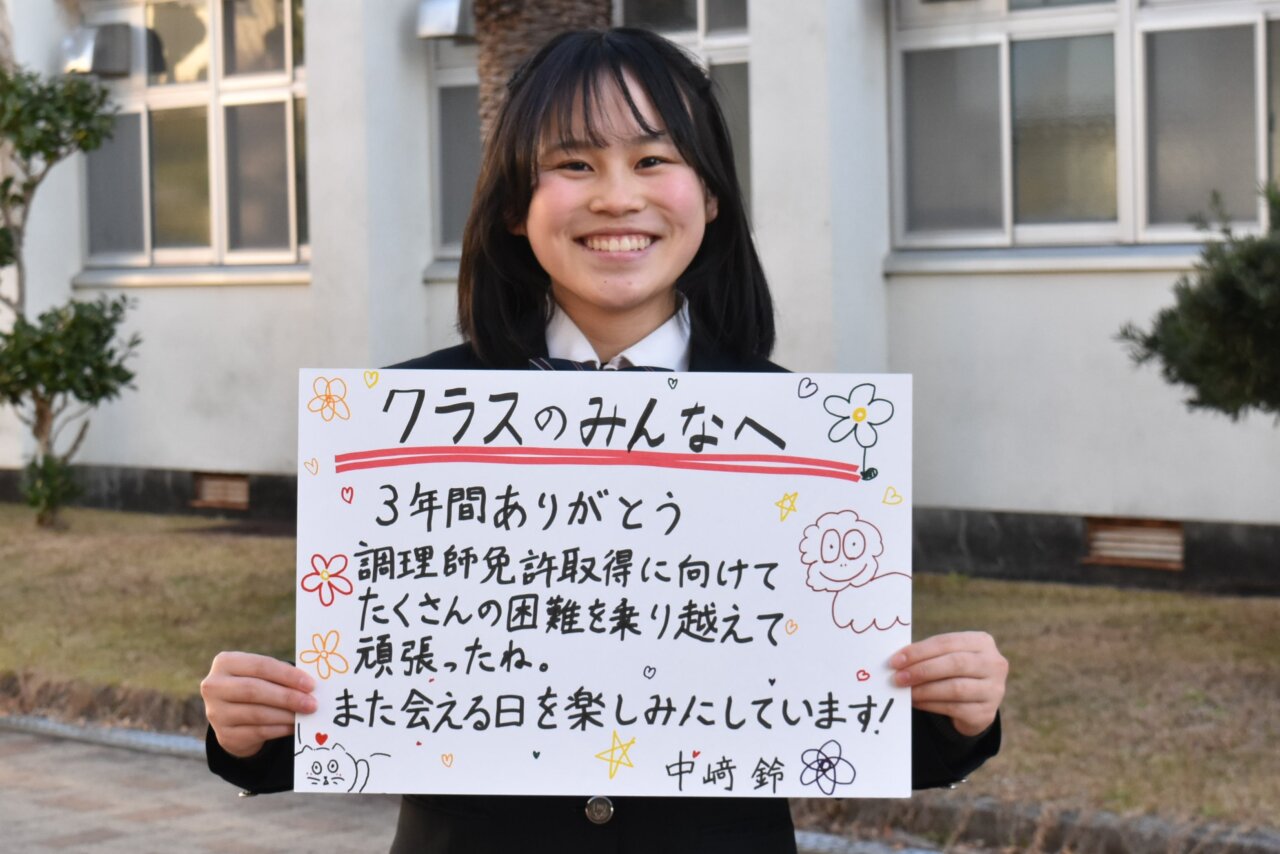 クラスのみんなへ
3年間ありがとう
調理師免許取得に向けて
たくさんの困難を乗り越えて
頑張ったね。
また会える日を楽しみにしています!
中﨑 鈴